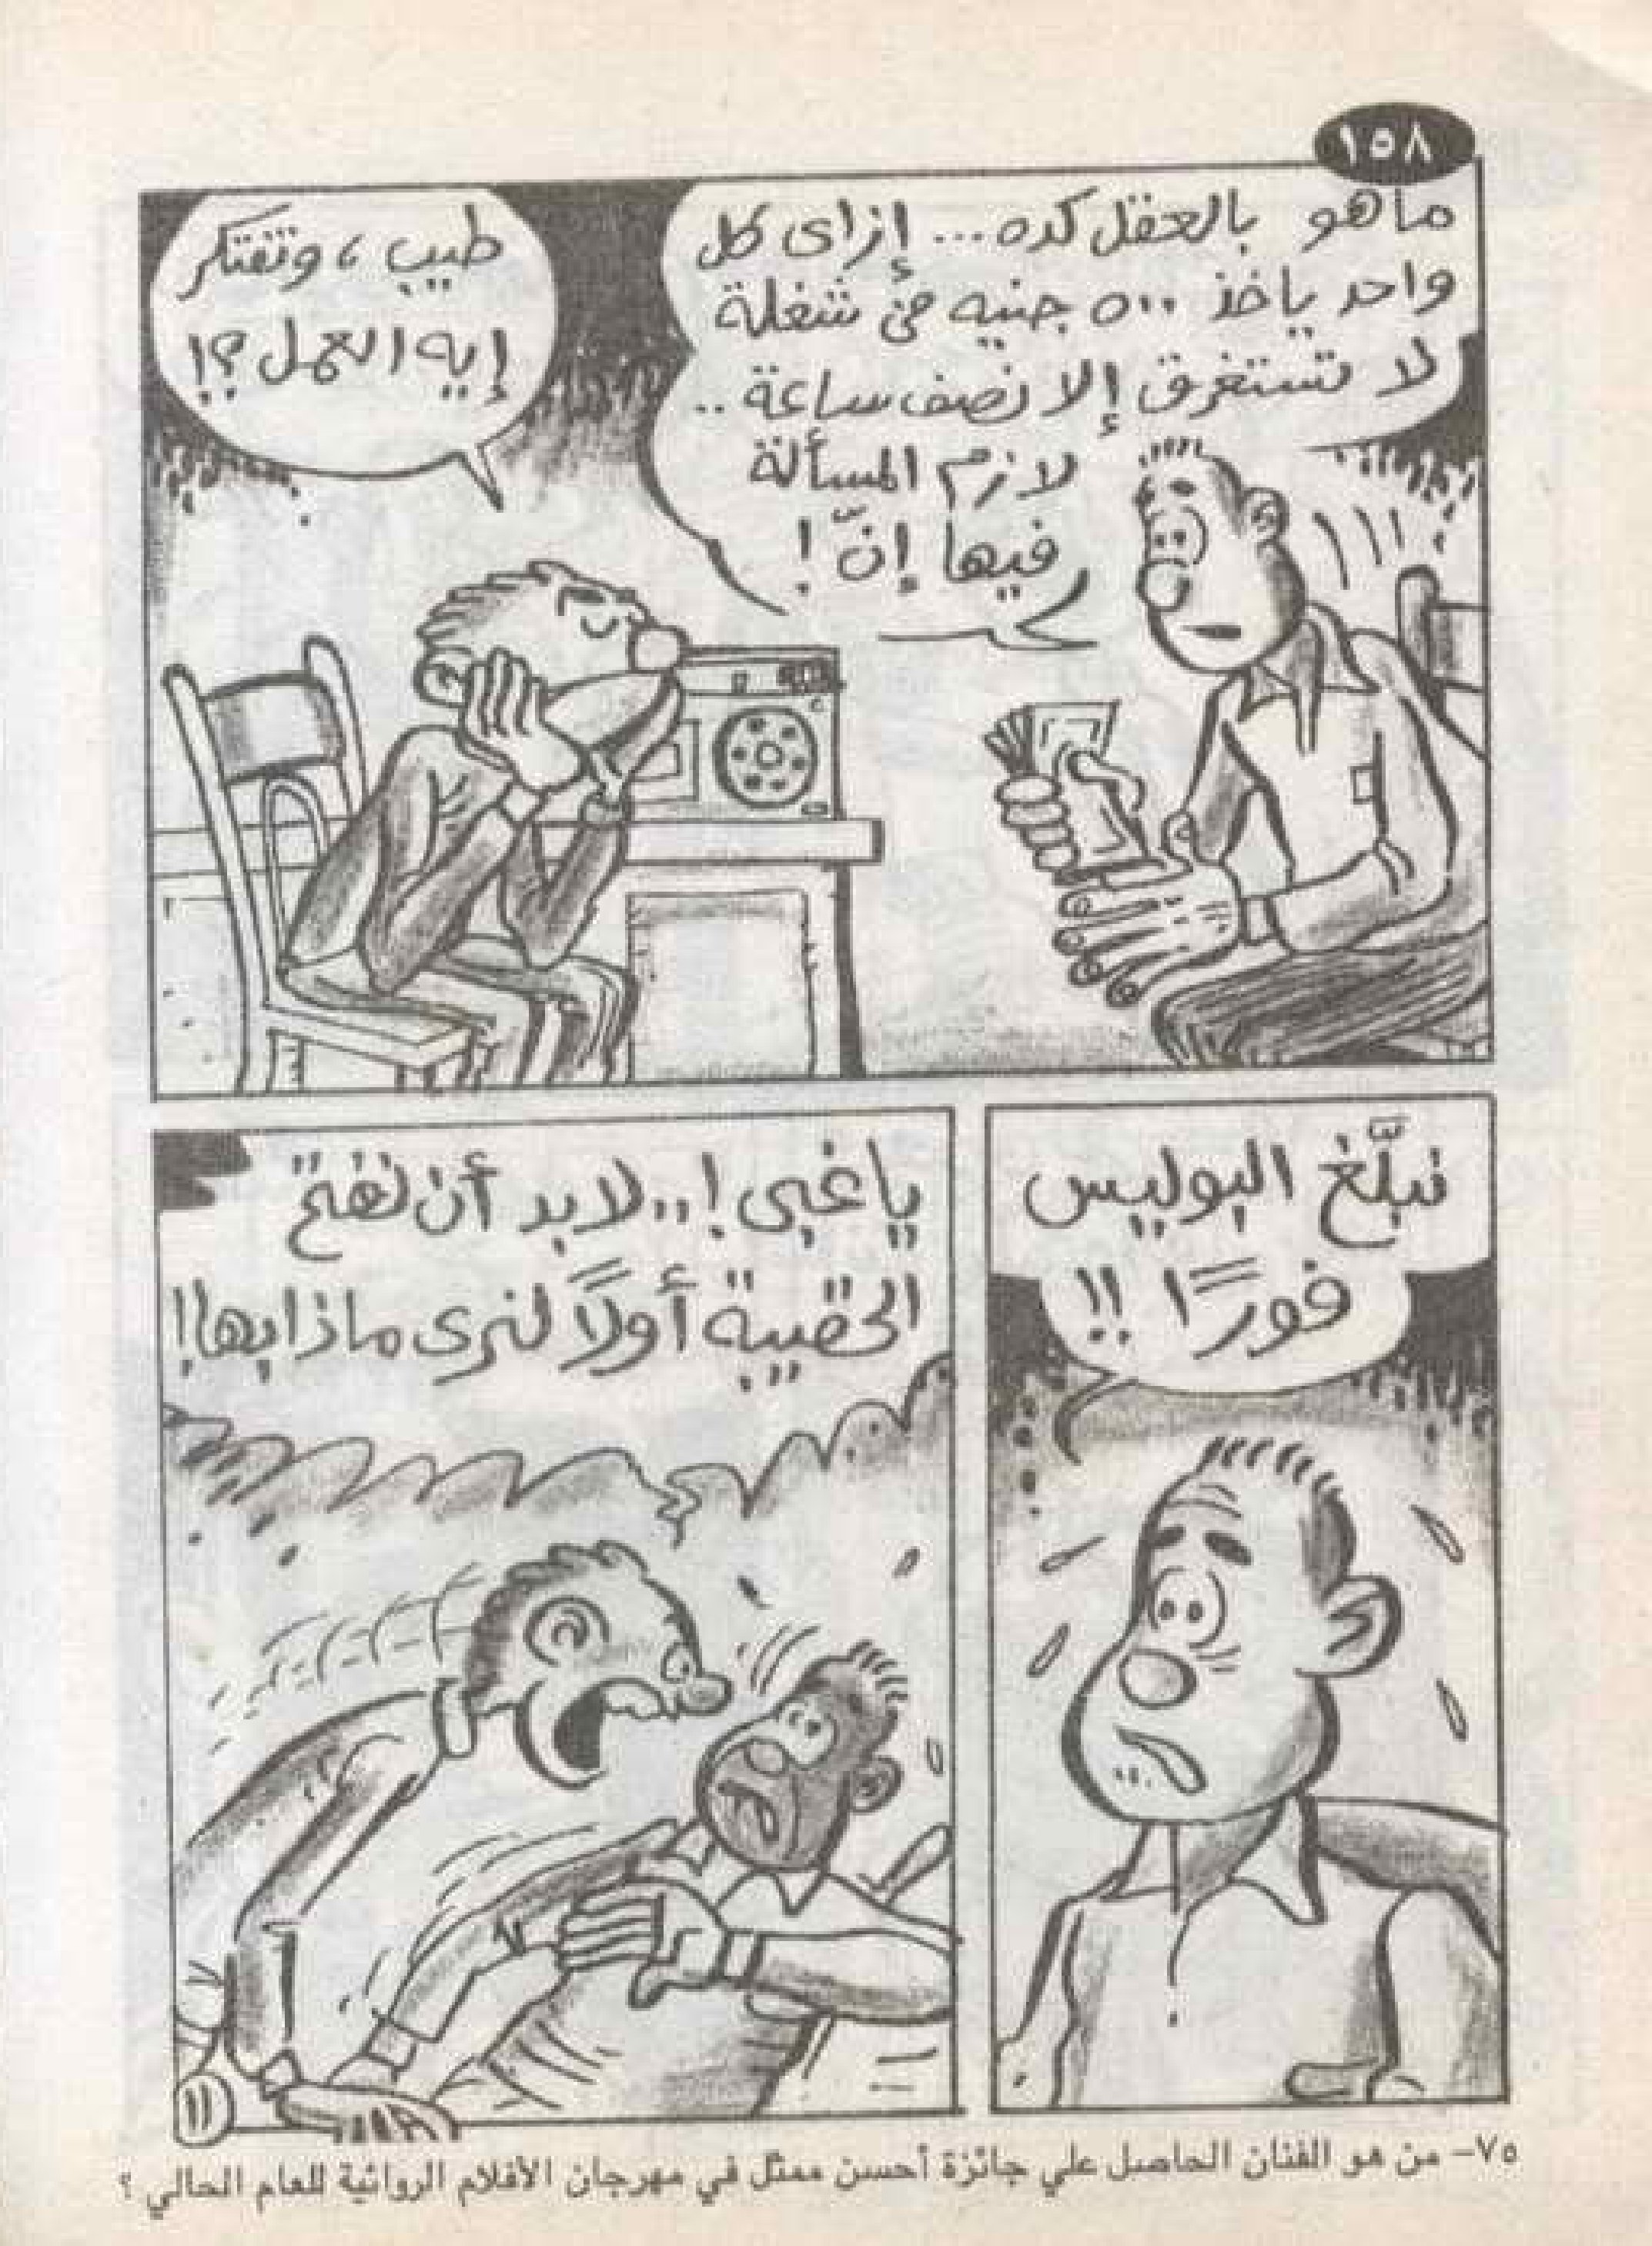 ١٥٨
ماهو بالعقل كده... إزاى كل
واحد ياخذ ٥٠٠ جنيه فى شغلة
لا تستغرق إلا نصف ساعة..
لازم المسألة
فيها إنّ !
طيب، وتفتكر
إيه العمل؟!
نبلّغ البوليس
فورًا !!
ياغبى !.. لابد أن نفتح
الحقيبة أولًا لنرى ماذا بها!
١١
٧٥- من هو الفنان الحاصل علي جائزة أحسن ممثل في مهرجان الأفلام الروائية للعام الحالي ؟